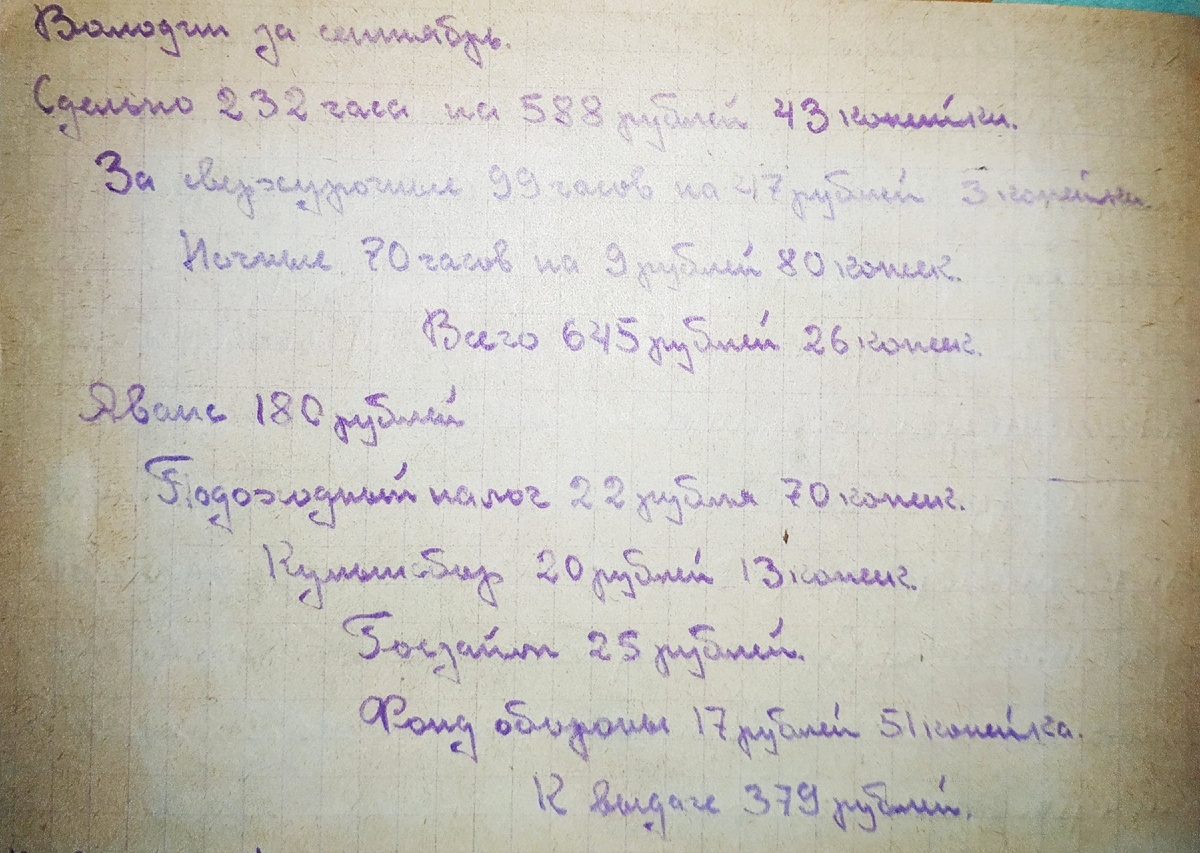 Володин за сентябрь.
Сдельно 232 часа на 588 рублей 43 копейки.
За сверхурочные 99 часов на 47 рублей 3 копейки.
Ночные 70 часов на 9 рублей 80 копеек.
Всего 645 рублей 26 копеек.
Аванс 180 рублей
Подоходный налог 22 рубля 70 копеек.
Культсбор 20 рублей 13 копеек.
Госзайм 25 рублей.
Фонд обороны 17 рублей 51 копейка.
К выдаче 379 рублей.